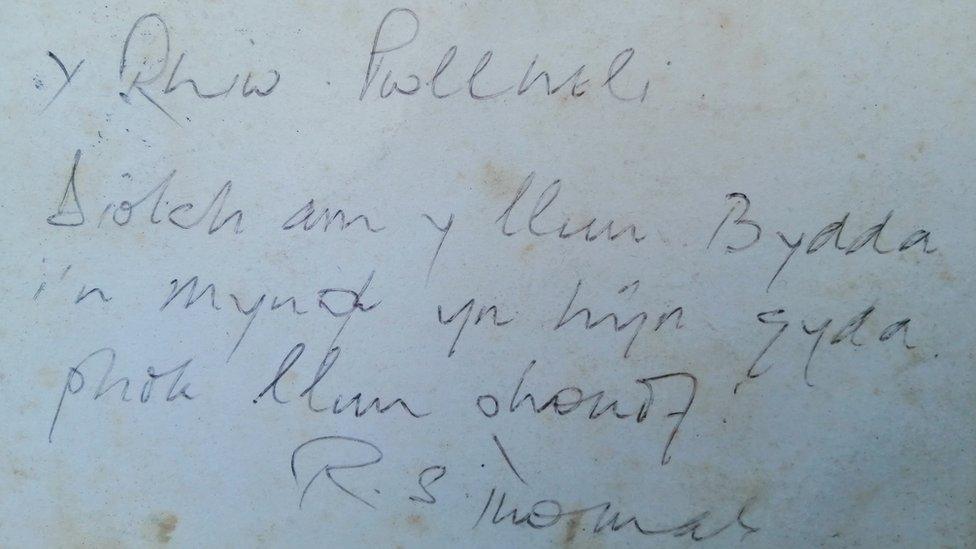 Y Rhiw. Pwllheli.
Diolch am y llun. Bydda
i'n mynd yn hŷn gyda
phob llun ohonof!
R. S. Thomas